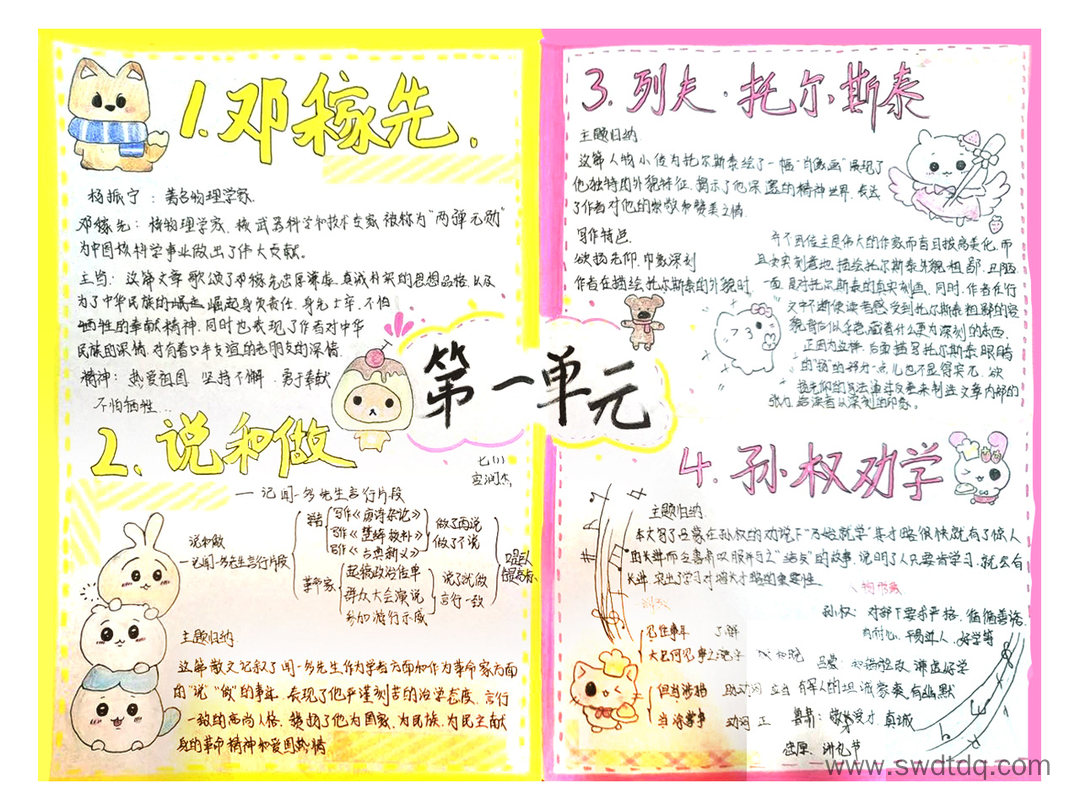 1. 邓稼先.
杨振宁：著名物理学家
邓稼先：核物理学家、核武器科学和技术专家 被称为“两弹元勋”
为中国核科学事业做出了伟大贡献。
主旨：这篇文章歌颂了邓稼先忠厚谦虚、真诚朴实的思想品格以及
为了中华民族的崛起身负责任、身先士卒、不怕
牺牲的奉献精神，同时也表现了作者对中华
民族的深情，对有着50年友谊的老朋友的深情.
精神：热爱祖国 坚持不懈 勇于奉献
不怕牺牲...
第一单元
2. 说和做
七(1)
— 记闻一多先生言行片段
说和做
—记闻一多先生言行片段
学者
写作《唐诗杂论》
写作《楚辞校补》
写作《古典新义》
做了再说
做了不说
革命家
起稿政治传单
群众大会演说
参加游行示威
说了就做
言行一致
主题归纳
这篇散文记叙了闻一多先生作为学者方面和作为革命家方面
的“说”“做”的事件，表现了他严谨刻苦的治学态度、言行
一致的高尚人格，赞扬了他为国家、为民族、为民主献
身的革命精神和爱国热情
3. 列夫·托尔斯泰
主题归纳
这篇人物小传为托尔斯泰绘了一幅“肖像画”展现了
他独特的外貌特征，揭示了他深邃的精神世界，表达
了作者对他的崇敬和赞美之情.
写作特色
欲扬先抑，印象深刻
作者在描绘托尔斯泰的外貌时，一面是对托尔斯泰的真实刻画，同时，作者在行
文中不断使读者感受到托尔斯泰粗鄙的容
正因为这样，后面描写托尔斯泰眼睛
的“扬”的部分一点儿也不显得突兀，欲
扬先抑的写法通过反差来制造文章内部的
张力，给读者以深刻的印象。
4. 孙权劝学
主题归纳
本文写了吕蒙在孙权的劝说下“乃始就学”其才略很快就有了惊人
的长进而令鲁肃叹服并与之“结友”的故事，说明了人只要肯学习，就会有
长进，突出了学习对增长才略的重要性
孙权：对部下要求严格、循循善诱、
有耐心、平易近人、好学等
吕蒙：知错能改、谦虚好学
有军人的坦诚豪爽、有幽默
鲁肃：敬才爱才 真诚
www.swdtdq.com